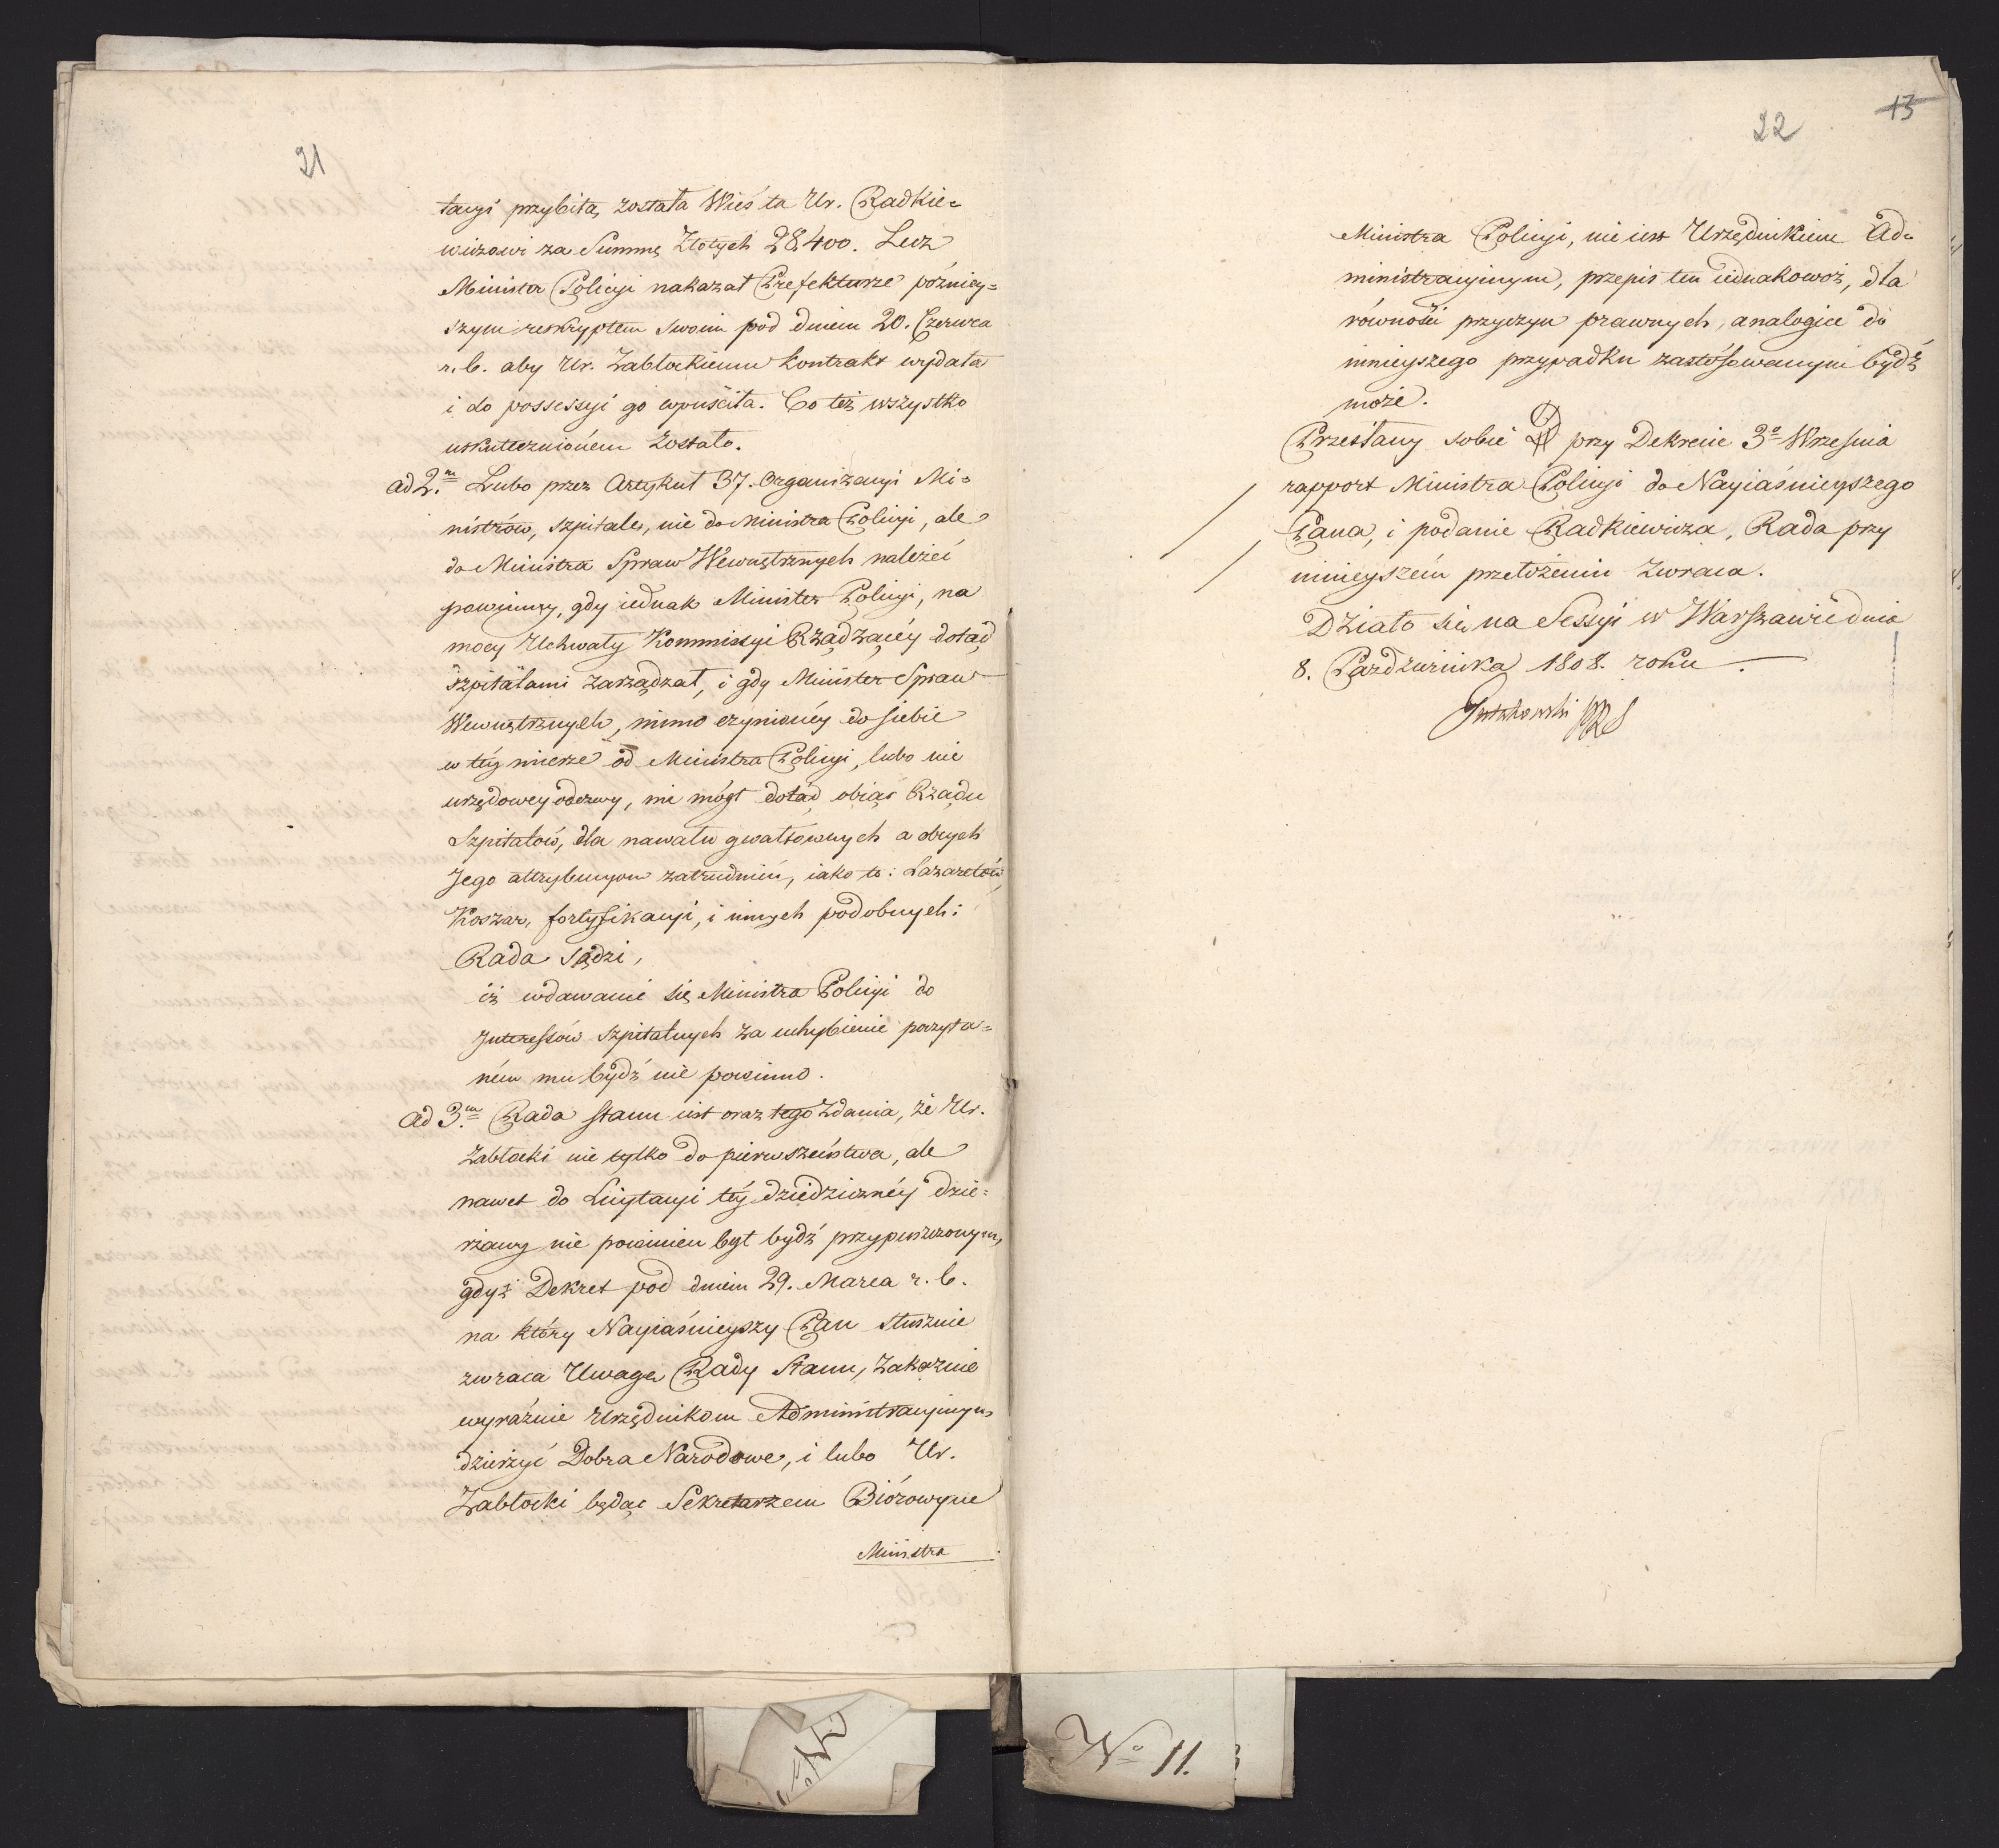 21
tacyi przybita, została Wieś ta Ur. Radkie=
wiczowi za Summę Złotych 28,400. Lecz
Minister Policyi nakazał Prefekturze późniey=
szym reskryptem swoim pod dniem 20. Czerwca
r. b. aby Ur. Zabłockiemu kontrakt wydała
i do possessyi go wpuściła. Co też wszystko
uskutecznioném zostało.
ad 2.m Lubo przez Artykuł 37. Organizacyi Mi=
nistrów, szpitale, nie do Ministra Policyi, ale
do Ministra Spraw Wewnętrznych należeć
powinny, gdy iednak Minister Policyi, na
mocy Uchwały Kommissyi Rządzącéy dotąd
szpitalami zarządzał, i gdy Minister Spraw
Wewnętrznych, mimo czynionéy do siebie
w téy mierze od Ministra Policyi, lubo nie
urzędowey odezwy, nie mógł dotąd obiąć Rządu
Szpitalów, dla nawału gwałtownych a obcych
Jego attrybucyom zatrudnień, iako to: Lazaretów,
Koszar, fortyfikacyi, i innych podobnych:
Rada sądzi,
iż wdawanie się Ministra Policyi do
Interessów szpitalnych za uchybienie poczyta=
ném mu bydź nie powinno.
ad 3.m Rada stanu iest oraz tego zdania, że Ur.
Zabłocki nie tylko do pierwszeństwa, ale
nawet do Licytacyi téy dziedzicznéy dzie=
rżawy nie powinien był bydź przypuszczonym,
gdyż Dekret pod dniem 29. Marca r. b.
na który Nayiaśnieyszy Pan słusznie
zwraca Uwagę Rady Stanu, zakaznie
wyraźnie Urzędnikom Administracyinym
dzierżyć Dobra Narodowe, i lubo Ur.
Zabłocki będąc Sekretarzem Biórowym
Ministra
22
13
Ministra Policyi, nie iest Urzędnikiem Ad=
ministracyinym, przepis ten iednakowoż, dla
równości przyczyn prawnych, analogice do
ninieyszego przypadku zastosowanym bydź
może.
Przesłany sobie przy Dekrecie 3o Września
rapport Ministra Policyi do Nayiaśnieyszego
Pana, i podanie Radkiewicza, Rada przy
ninieyszém przełożeniu zwraca.
Działo się na Sessyi w Warszawie dnia
8. Pazdziernika 1808. roku.
Gutakowski
No 11.